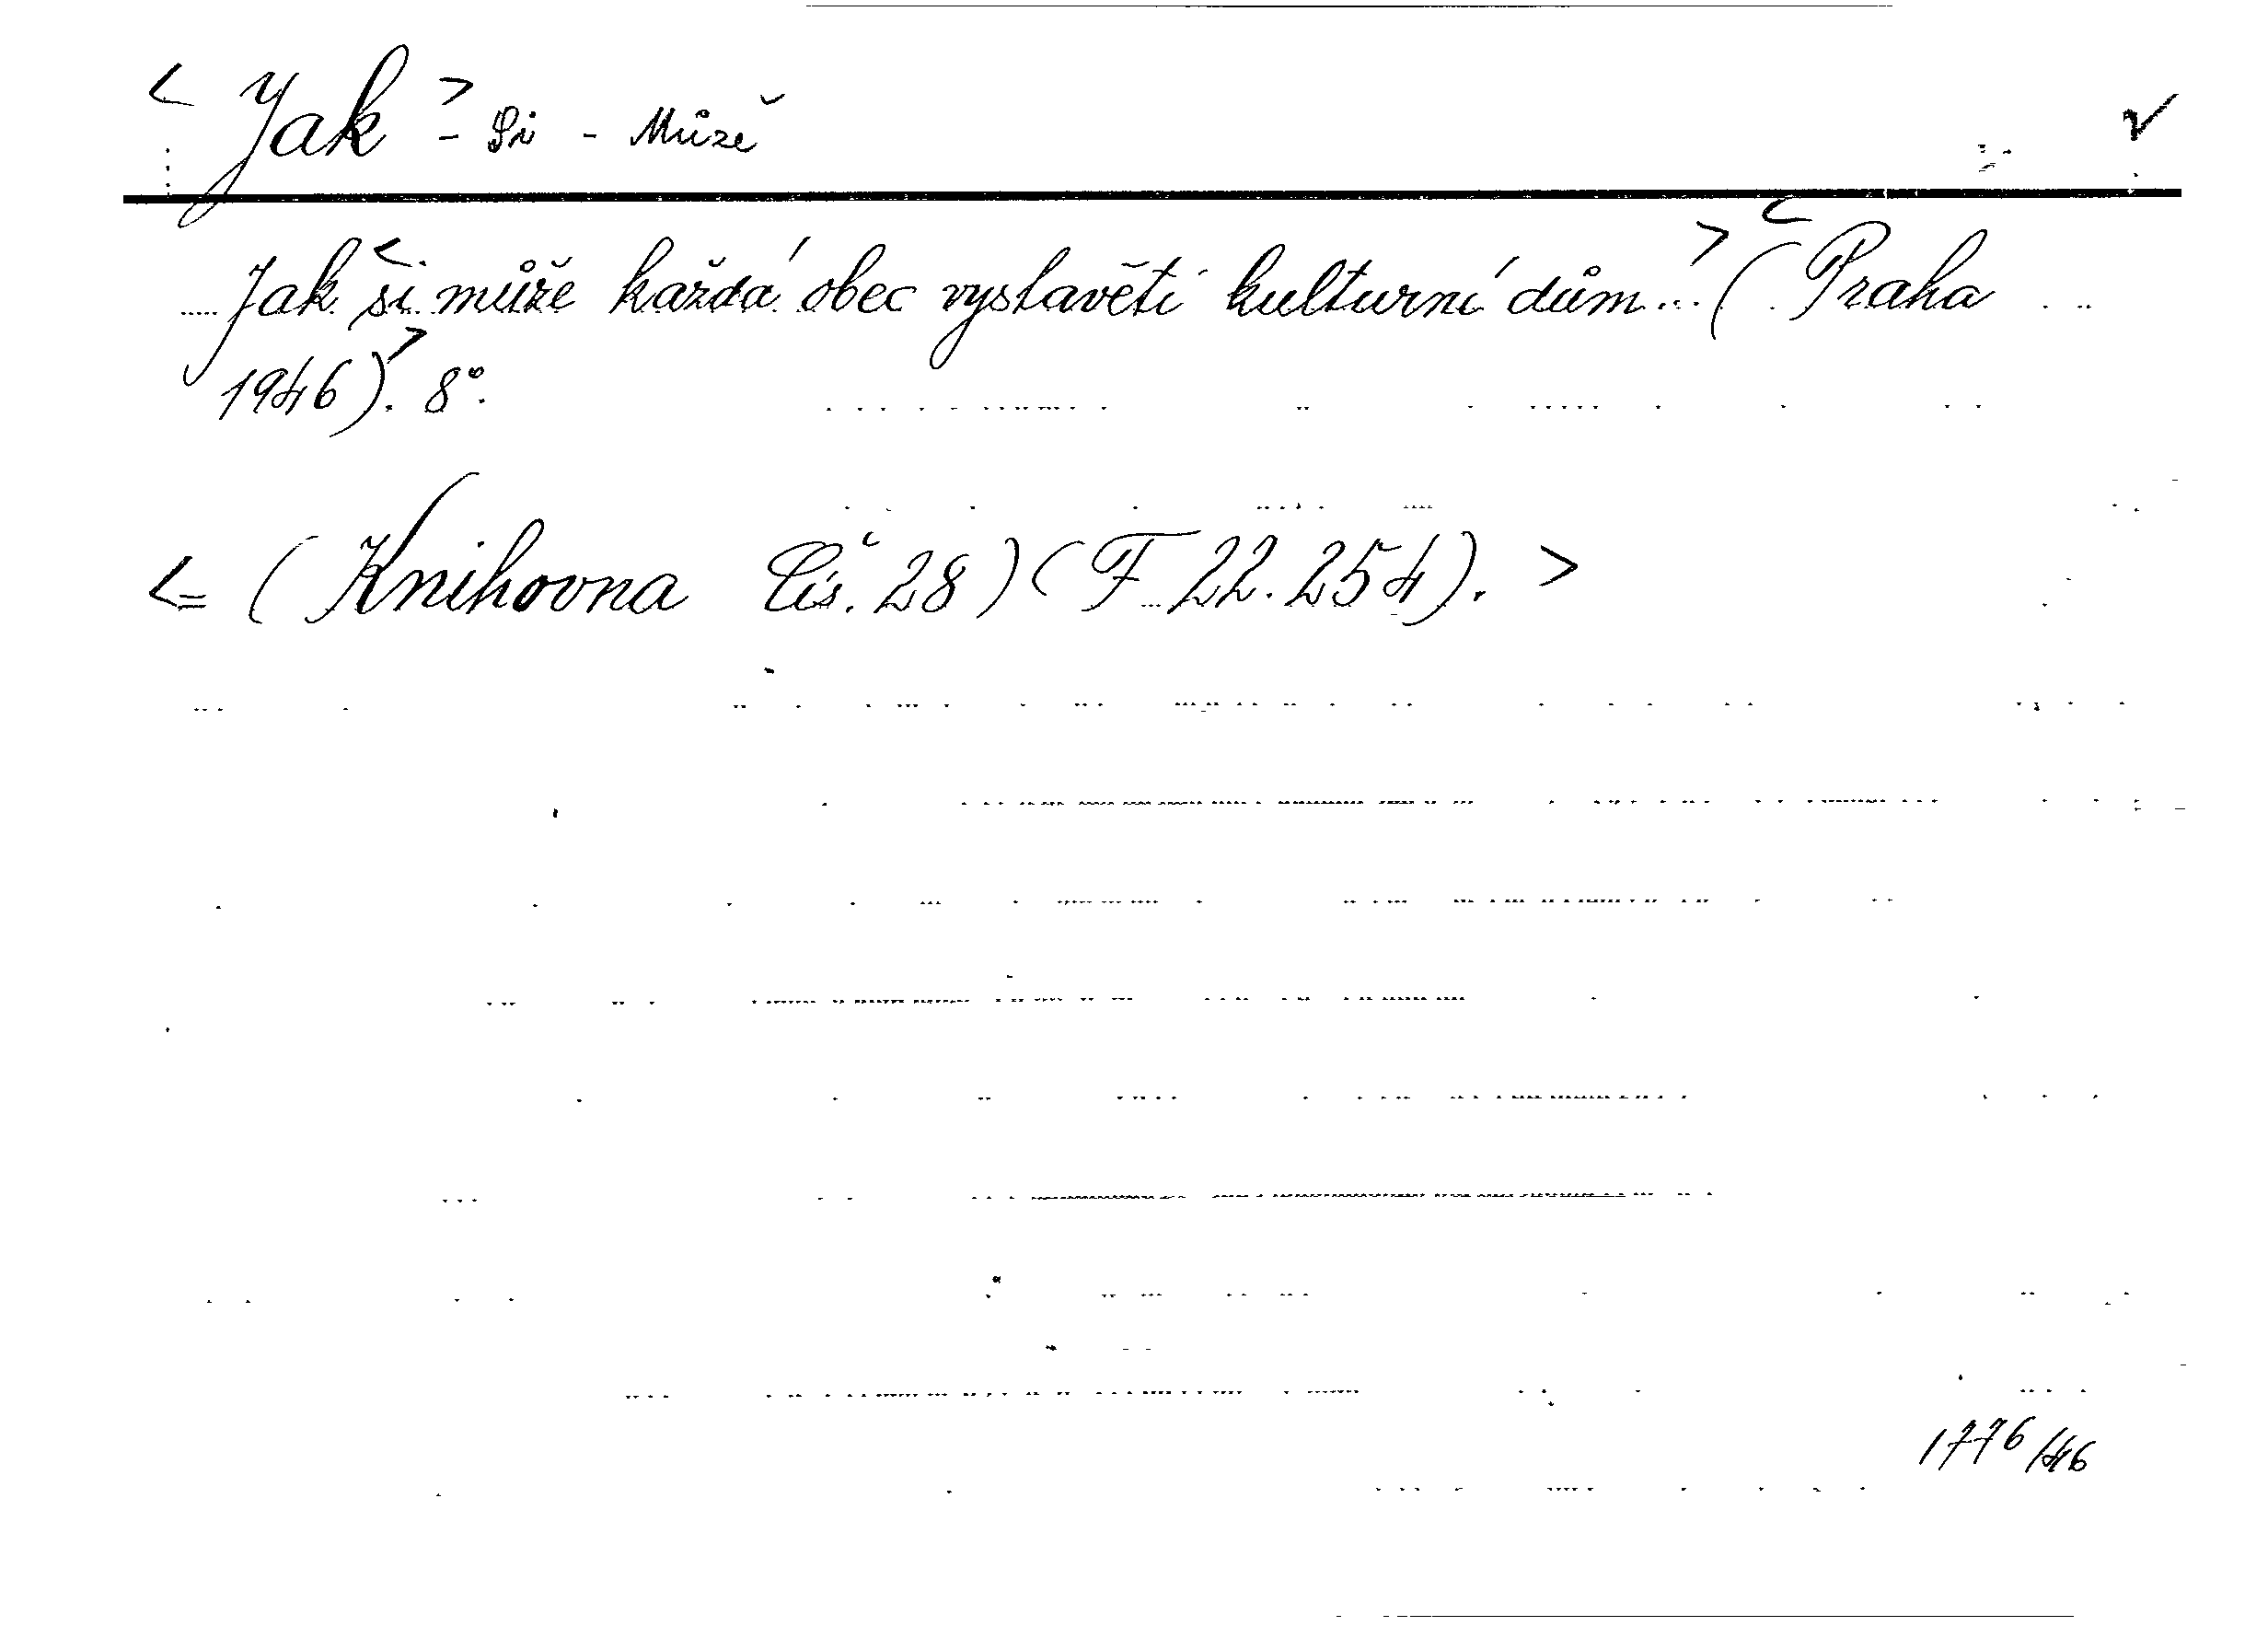 < Jak > - Si - Může
Jak < si může každá obec vystavěti kulturní dům... > < (Praha
1946) >. 8°.
<= (Knihovna Čís. 28) (F 22.254). >
1776/46